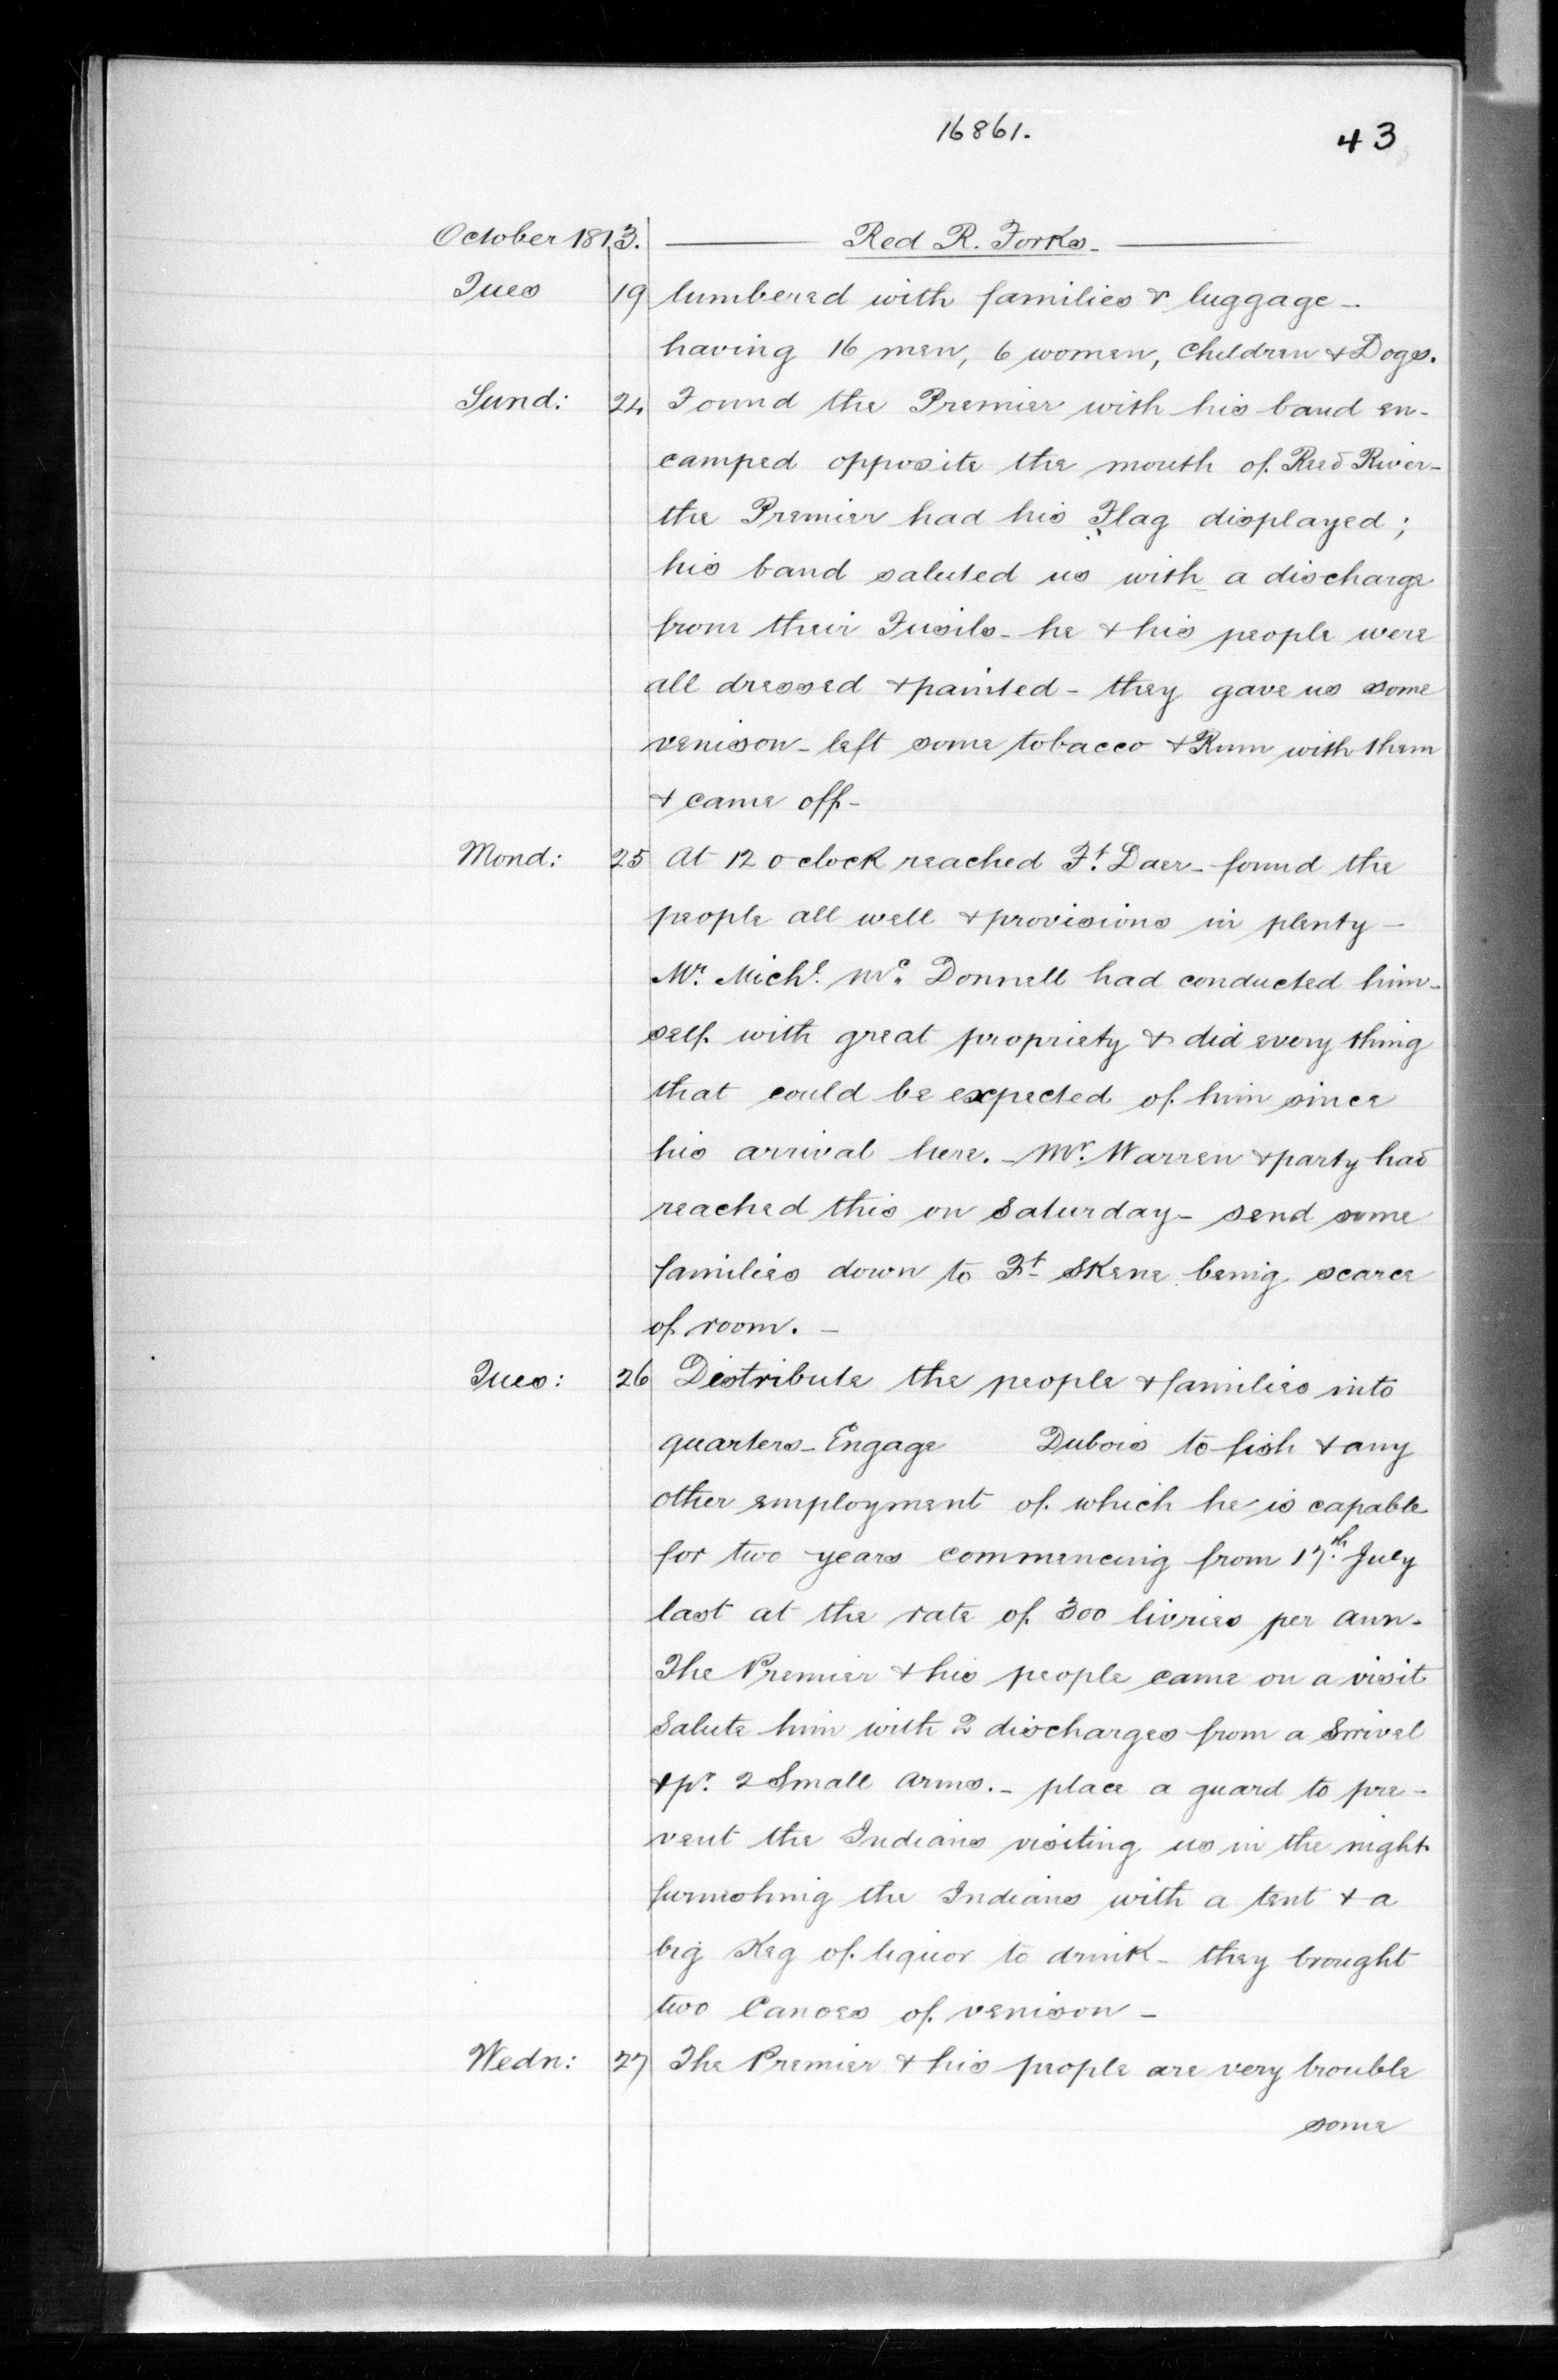 16861.
43
October 1813. Red R. Forks.
Tues 19 lumbered with families & luggage -
having 16 men, 6 women, Children & Dogs.
Sund: 24 Found the Premier with his band en-
camped opposite the mouth of Reed River -
the Premier had his Flag displayed;
his band saluted us with a discharge
from their Fusils - he & his people were
all dressed & painted - they gave us some
venison - left some tobacco & Rum with them
& came off -
Mond: 25 At 12 o clock reached Ft. Daer - found the
people all well & provisions in plenty -
Mr. Michl. Mc. Donnell had conducted him-
self with great propriety & did every thing
that could be expected of him since
his arrival here. - Mr. Warren & party had
reached this on Saturday - send some
families down to Ft Skene being scarce
of room. -
Tues: 26 Distribute the people & families into
quarters - Engage Dubois to fish & any
other employment of which he is capable
for two years commencing from 17th. July
last at the rate of 300 livries per ann.
The Premier & his people came on a visit
Salute him with 2 discharges from a Swivel
& pr. 2 Small Arms. - place a guard to pre-
vent the Indians visiting us in the night
furnishing the Indians with a tent & a
big Keg of liquor to drink - they brought
two Canoes of venison -
Wedn: 27 The Premier & his people are very trouble
some